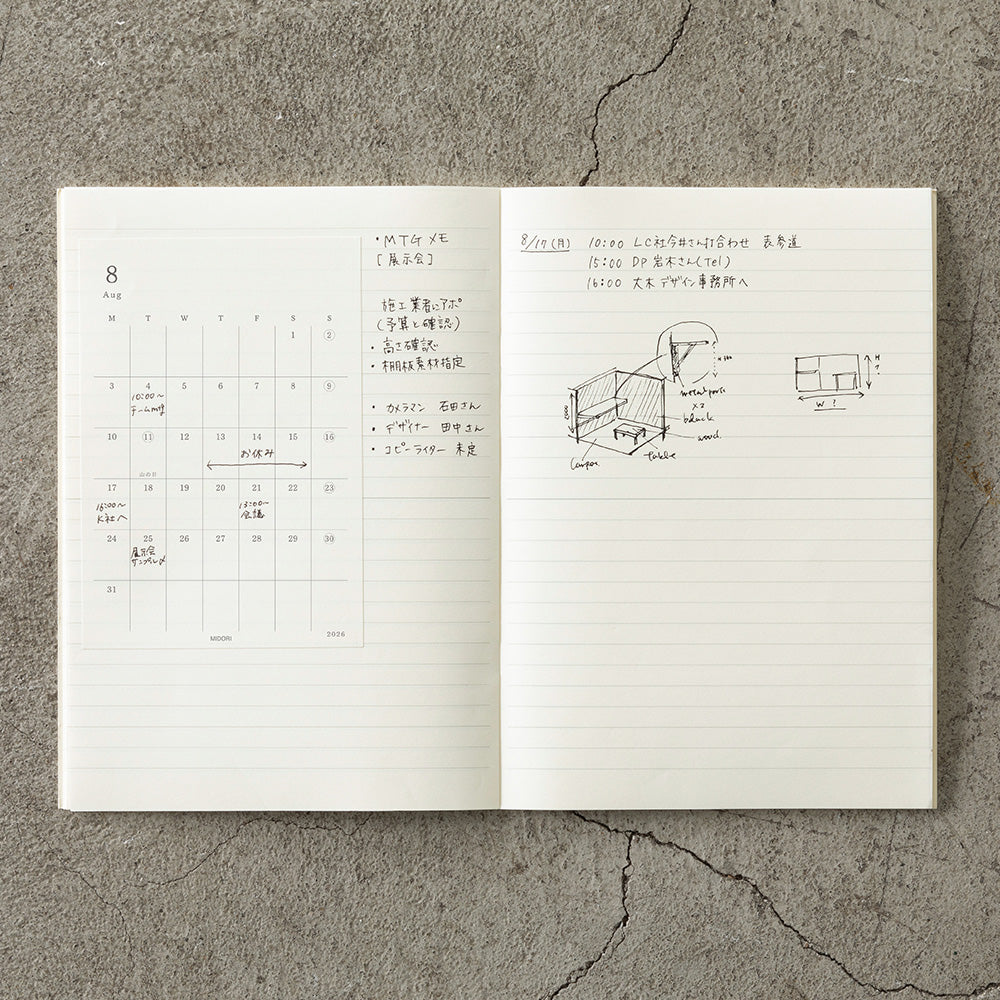 8
Aug
M T W T F S S
1 ②
3 4 5 6 7 8 ⑨
10:00～
チームmtg
10 ⑪ 12 13 14 15 ⑯
山の日
お休み
17 18 19 20 21 22 ㉓
16:00～
K社へ
13:00～
会議
24 25 26 27 28 29 ㉚
展示会
サンプル〆
31
MIDORI
2026
・MTG メモ
[展示会]
施工業者にアポ
(予算と確認)
・高さ確認
・棚板素材指定
・カメラマン 石田さん
・デザイナー 田中さん
・コピーライター 未定
8/17(月) 10:00 LC社今井さん打合わせ 表参道
15:00 DP 岩木さん(Tel)
16:00 大木デザイン事務所へ
metal
×2
black
wood
table
H
?
W ?